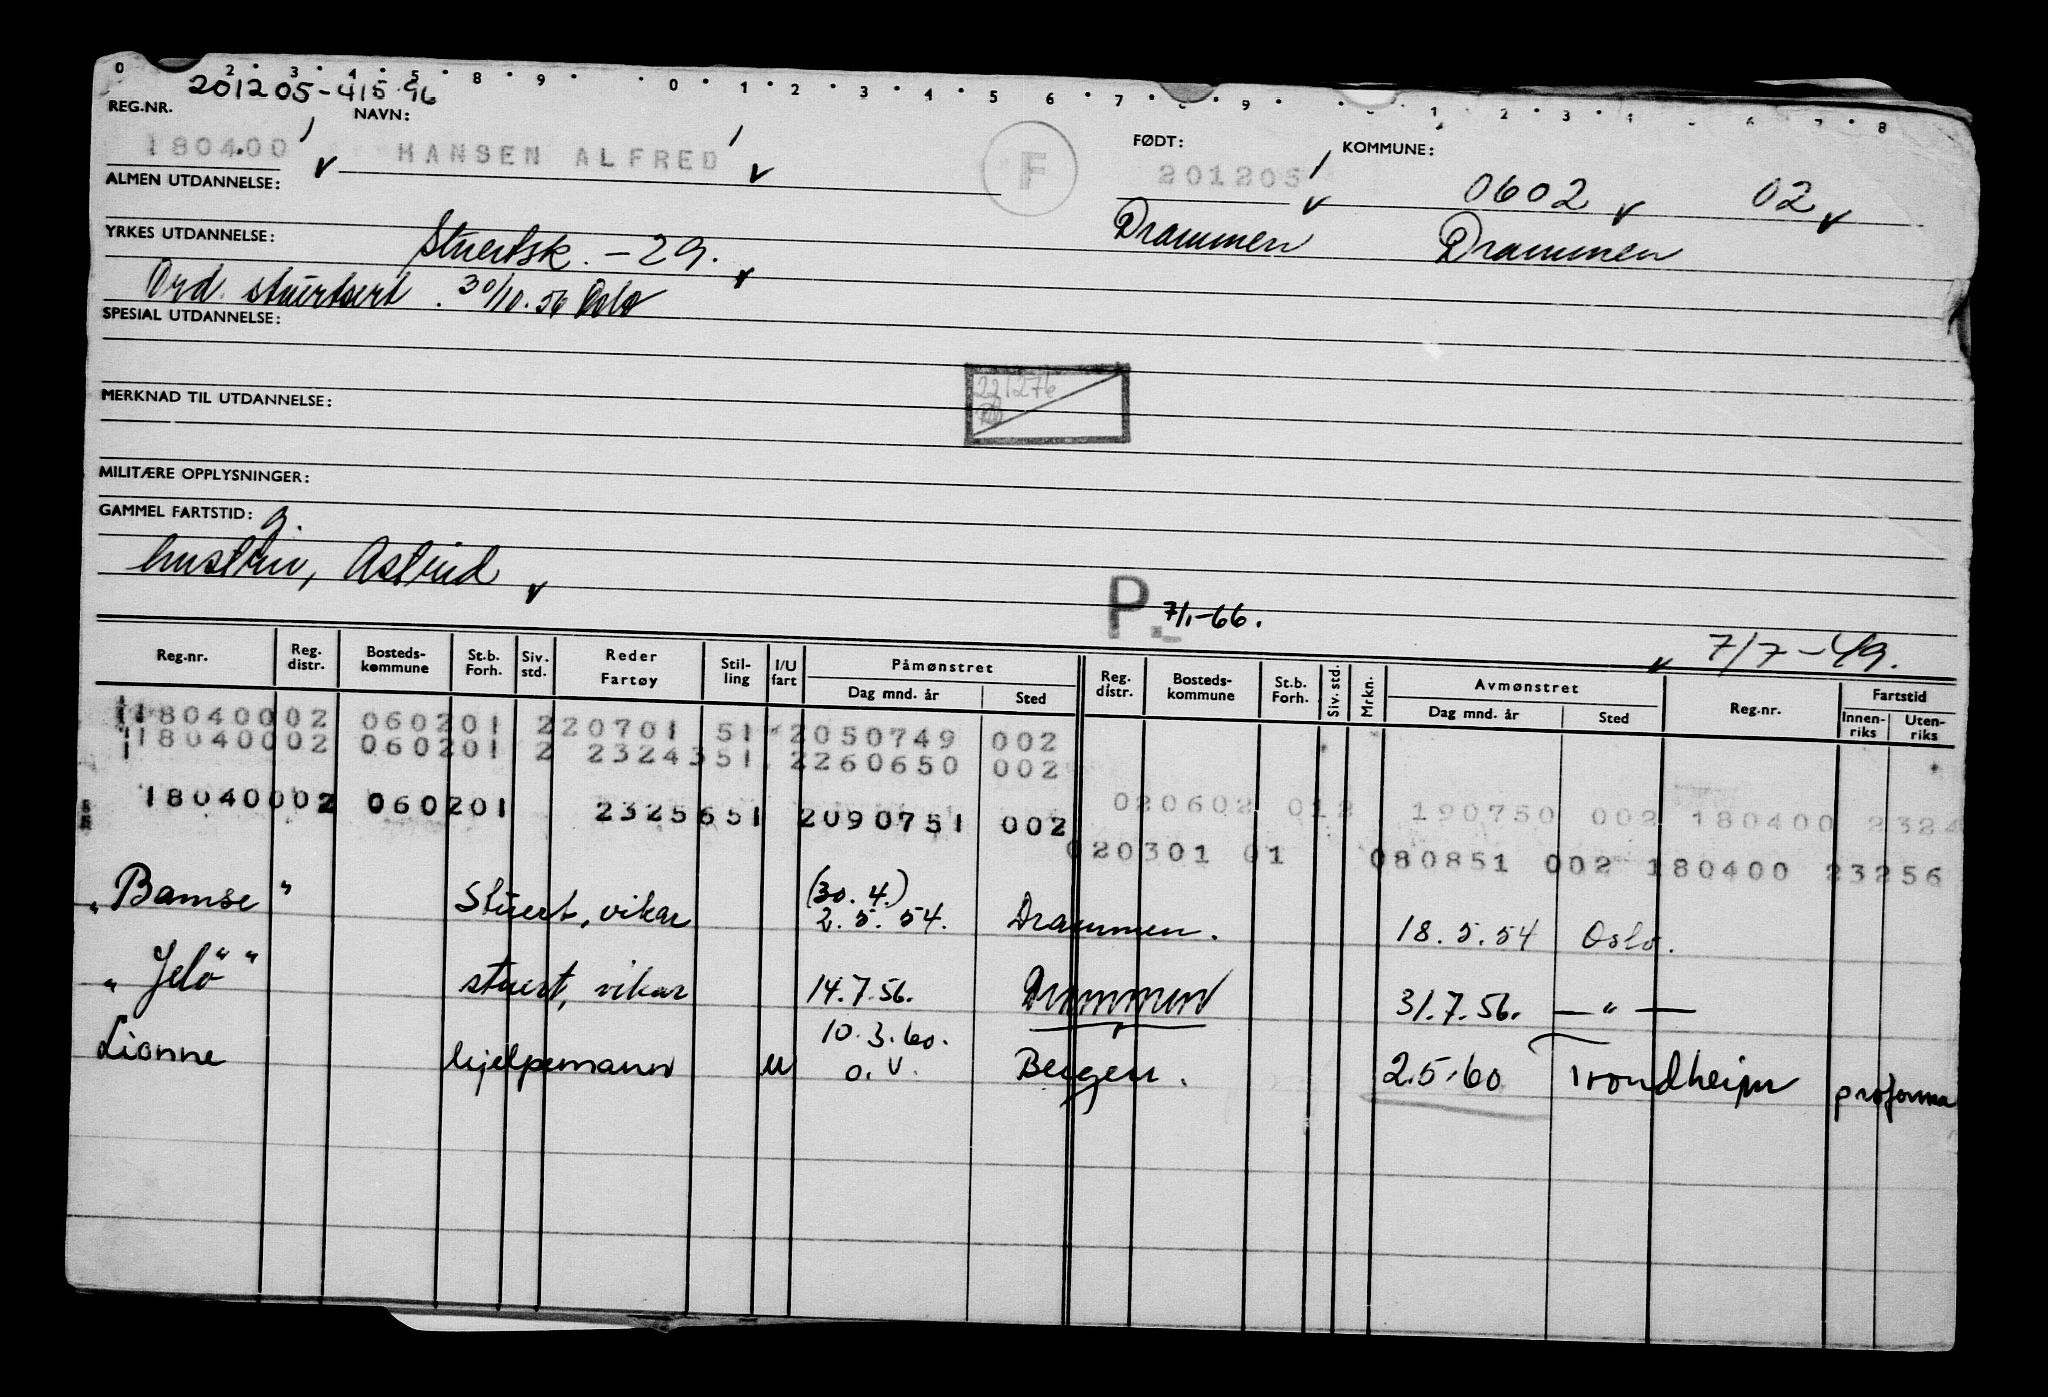 0 2 3 4 5 8 9 0 1 2 3 4 5 6 7 9 1 2 3 8
201205-415 96
REG.NR. NAVN: FØDT: KOMMUNE:
180400 HANSEN ALFRED F 201205 0602 02
ALMEN UTDANNELSE: Drammen Drammen
YRKES UTDANNELSE: Stuertsk. -29.
Ord. stuertsert. 30/10.56 Oslo
SPESIAL UTDANNELSE:
221276
MERKNAD TIL UTDANNELSE:
MILITÆRE OPPLYSNINGER:
GAMMEL FARTSTID: g.
hustru, Astrid
P. 7/1-66.
7/7-49.
Reg.nr. Reg. distr. Bosteds-kommune St.b. Forh. Siv. std. Reder Fartøy Stil-ling I/U fart Påmønstret Dag mnd. år Sted Reg. distr. Bosteds-kommune St.b. Forh. Siv. std. Mrkn. Avmønstret Dag mnd. år Sted Reg.nr. Fartstid Innen-riks Uten-riks
18040002 060201 2 20701 51 2050749 002
18040002 060201 2 2324351 2260650 002
18040002 060201 2325651 2090751 002 020602 012 190750 002 180400 2324
020301 01 080851 002 180400 23256
"Bamse" Stuert, vikar (30.4.) 2.5.54. Drammen. 18.5.54 Oslo.
"Jelö" stuert, vikar 14.7.56. Drammen 31.7.56. — " —
Lionne hjelpemann u 10.3.60. o.v. Bergen. 2.5.60 Trondheim proforma